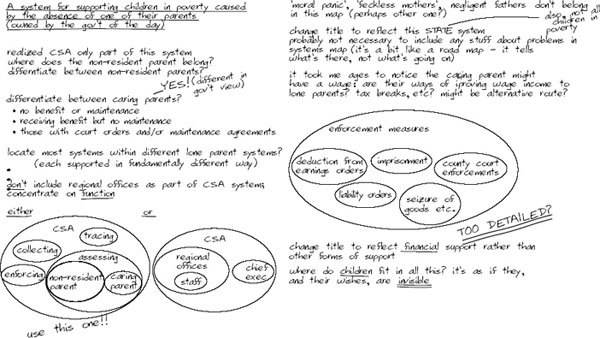 A system for supporting children in poverty caused
by the absence of one of their parents
(owned by the gov't of the day)
realized CSA only part of this system
where does the non-resident parent belong?
differntiate between non-resident parents?
YES! (different in
gov't view)
differentiate between caring parents?
• no benefit or maintenance
• receiving benefit but no maintenance
• those with court orders and/or maintenance agreements
locate most systems within different lone parent systems?
(each supported in fundamentally different way)
•
•
don't include regional offices as part of CSA system;
concentrate on function
either
or
CSA
tracing
collecting
assessing
enforcing
non-resident
parent
caring
parent
use this one!!
CSA
regional
offices
staff
chief
exec
'moral panic', 'feckless mothers', negligent fathers don't belong
in this map (perhaps other one?)
also, not all
children in
poverty
change title to reflect this STATE system
probably not necessary to include any stuff about problems in
systems map (it's a bit like a road map - it tells
what's there, not what's going on)
it took me ages to notice the caring parent might
have a wage: are their ways of iproving wage income to
lone parents? tax breaks, etc? might be alternative route?
enforcement measures
deduction from
earnings orders
imprisonment
county court
enforcements
liability orders
seizure of
goods etc.
TOO DETAILED?
change title to reflect financial support rather than
other forms of support
where do children fit in all this? it's as if they,
and their wishes, are invisible